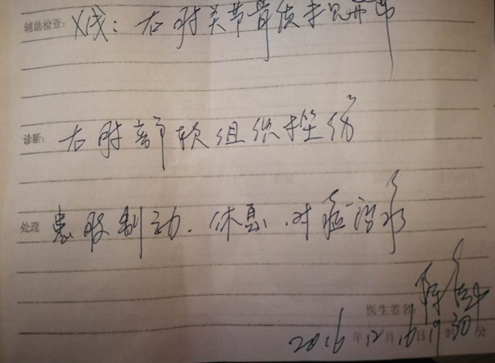 辅助检查: X线: 右肘关节骨质未见异常
诊断: 右肘部软组织挫伤
处理 患肢制动. 休息. 对症治疗
医生签名:
2016年12月16日19时30分